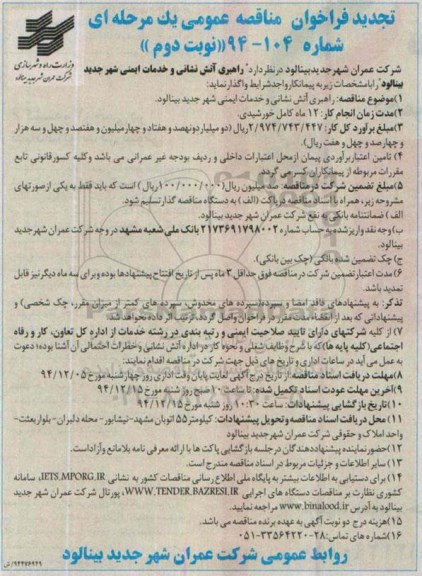 تجدید فراخوان مناقصه عمومی یک مرحله ای
شماره ۱۰۴-۹۴ «(نوبت دوم)»
وزارت راه و شهرسازی
شرکت عمران شهر جدید بینالود
شرکت عمران شهر جدید بینالود در نظر دارد" راهبری آتش نشانی و خدمات ایمنی شهر جدید
بینالود" را با مشخصات زیر به پیمانکار واجد شرایط واگذار نماید:
۱)موضوع مناقصه: راهبری آتش نشانی و خدمات ایمنی شهر جدید بینالود.
۲)مدت زمان انجام کار: ۱۲ ماه کامل خورشیدی.
۳)مبلغ برآورد کل کار: ۲/۹۷۴/۷۴۳/۴۴۷ریال (دو میلیارد و نهصد و هفتاد و چهار میلیون و هفتصد و چهل و سه هزار
و چهارصد و چهل و هفت ریال).
۴) تامین اعتبار برآوردی پیمان از محل اعتبارات داخلی و ردیف بودجه غیر عمرانی می باشد و کلیه کسور قانونی تابع
مقررات مربوطه از پیمانکاران کسر می گردد.
۵)مبلغ تضمین شرکت در مناقصه: سه میلیون ریال(۱۰۰/۰۰۰/۰۰۰ریال) است که باید فقط به یکی از صورتهای
مشروحه زیر، همراه با اسناد مناقصه در پاکت (الف) به دستگاه مناقصه گذار تسلیم شود.
الف) ضمانتنامه بانکی به نفع شرکت عمران شهر جدید بینالود.
ب)وجه نقد واریز شده به حساب شماره ۲۱۷۳۶۹۱۷۹۸۰۰۲ بانک ملی شعبه مشهد در وجه شرکت عمران شهر جدید
بینالود.
ج) چک تضمین شده بانکی (چک بین بانکی).
۶)مدت اعتبار تضمین شرکت در مناقصه فوق حداقل ۳ ماه پس از تاریخ افتتاح پیشنهادها بوده و برای سه ماه دیگر نیز قابل
تمدید باشد.
تذکر: به پیشنهادهای فاقد امضا و سپرده(سپرده های مخدوش، سپرده های کمتر از میزان مقرر، چک شخصی) و
پیشنهاداتی که بعد از انقضاء مدت مقرر در فراخوان واصل گردد ترتیب اثر داده نخواهد شد.
۷) از کلیه شرکتهای دارای تایید صلاحیت ایمنی و رتبه بندی در رشته خدمات از اداره کل تعاون، کار و رفاه
اجتماعی(کلیه پایه ها)که با شرح وظایف شغلی و نحوه کار در اداره آتش نشانی و خطرات احتمالی آن آشنا بوده؛ دعوت
به عمل می آید در ساعات اداری و تاریخ های ذیل جهت شرکت در مناقصه اقدام نمایند:
۸)مهلت دریافت اسناد مناقصه: از تاریخ درج آگهی لغایت پایان وقت اداری روز چهارشنبه مورخ ۹۴/۱۲/۰۵
۹)آخرین مهلت عودت اسناد تکمیل شده: تا ساعت ۱۰ صبح روز شنبه مورخ ۹۴/۱۲/۱۵
۱۰)تاریخ بازگشایی پیشنهادات: ساعت ۱۰:۳۰ روز شنبه مورخ ۹۴/۱۲/۱۵
۱۱) محل دریافت اسناد مناقصه و تحویل پیشنهادات: کیلومتر ۵۵ اتوبان مشهد-نیشابور- محله دلبران- بلوار بعثت-
واحد املاک و حقوقی شرکت عمران شهر جدید بینالود
۱۲)حضور نماینده پیشنهاد دهندگان در جلسه بازگشایی پاکت ها با ارائه معرفی نامه بلامانع و آزاد است.
۱۳) سایر اطلاعات و جزئیات مربوط در اسناد مناقصه مندرج است.
۱۴) برای دستیابی به اطلاعات بیشتر به پایگاه ملی اطلاع رسانی مناقصات کشور به نشانی IETS.MPORG.IR، سامانه
کشوری نظارت بر مناقصات دستگاه های اجرایی WWW.TENDER.BAZRESI.IR، پورتال شرکت عمران شهر جدید
بینالود به آدرس www.binalood.ir مراجعه نمایید.
۱۵)هزینه درج دو نوبت آگهی به عهده برنده مناقصه می باشد.
۱۶)شماره های تماس: ۲۸-۳۳۵۶۴۲۲۰-۰۵۱
روابط عمومی شرکت عمران شهر جدید بینالود